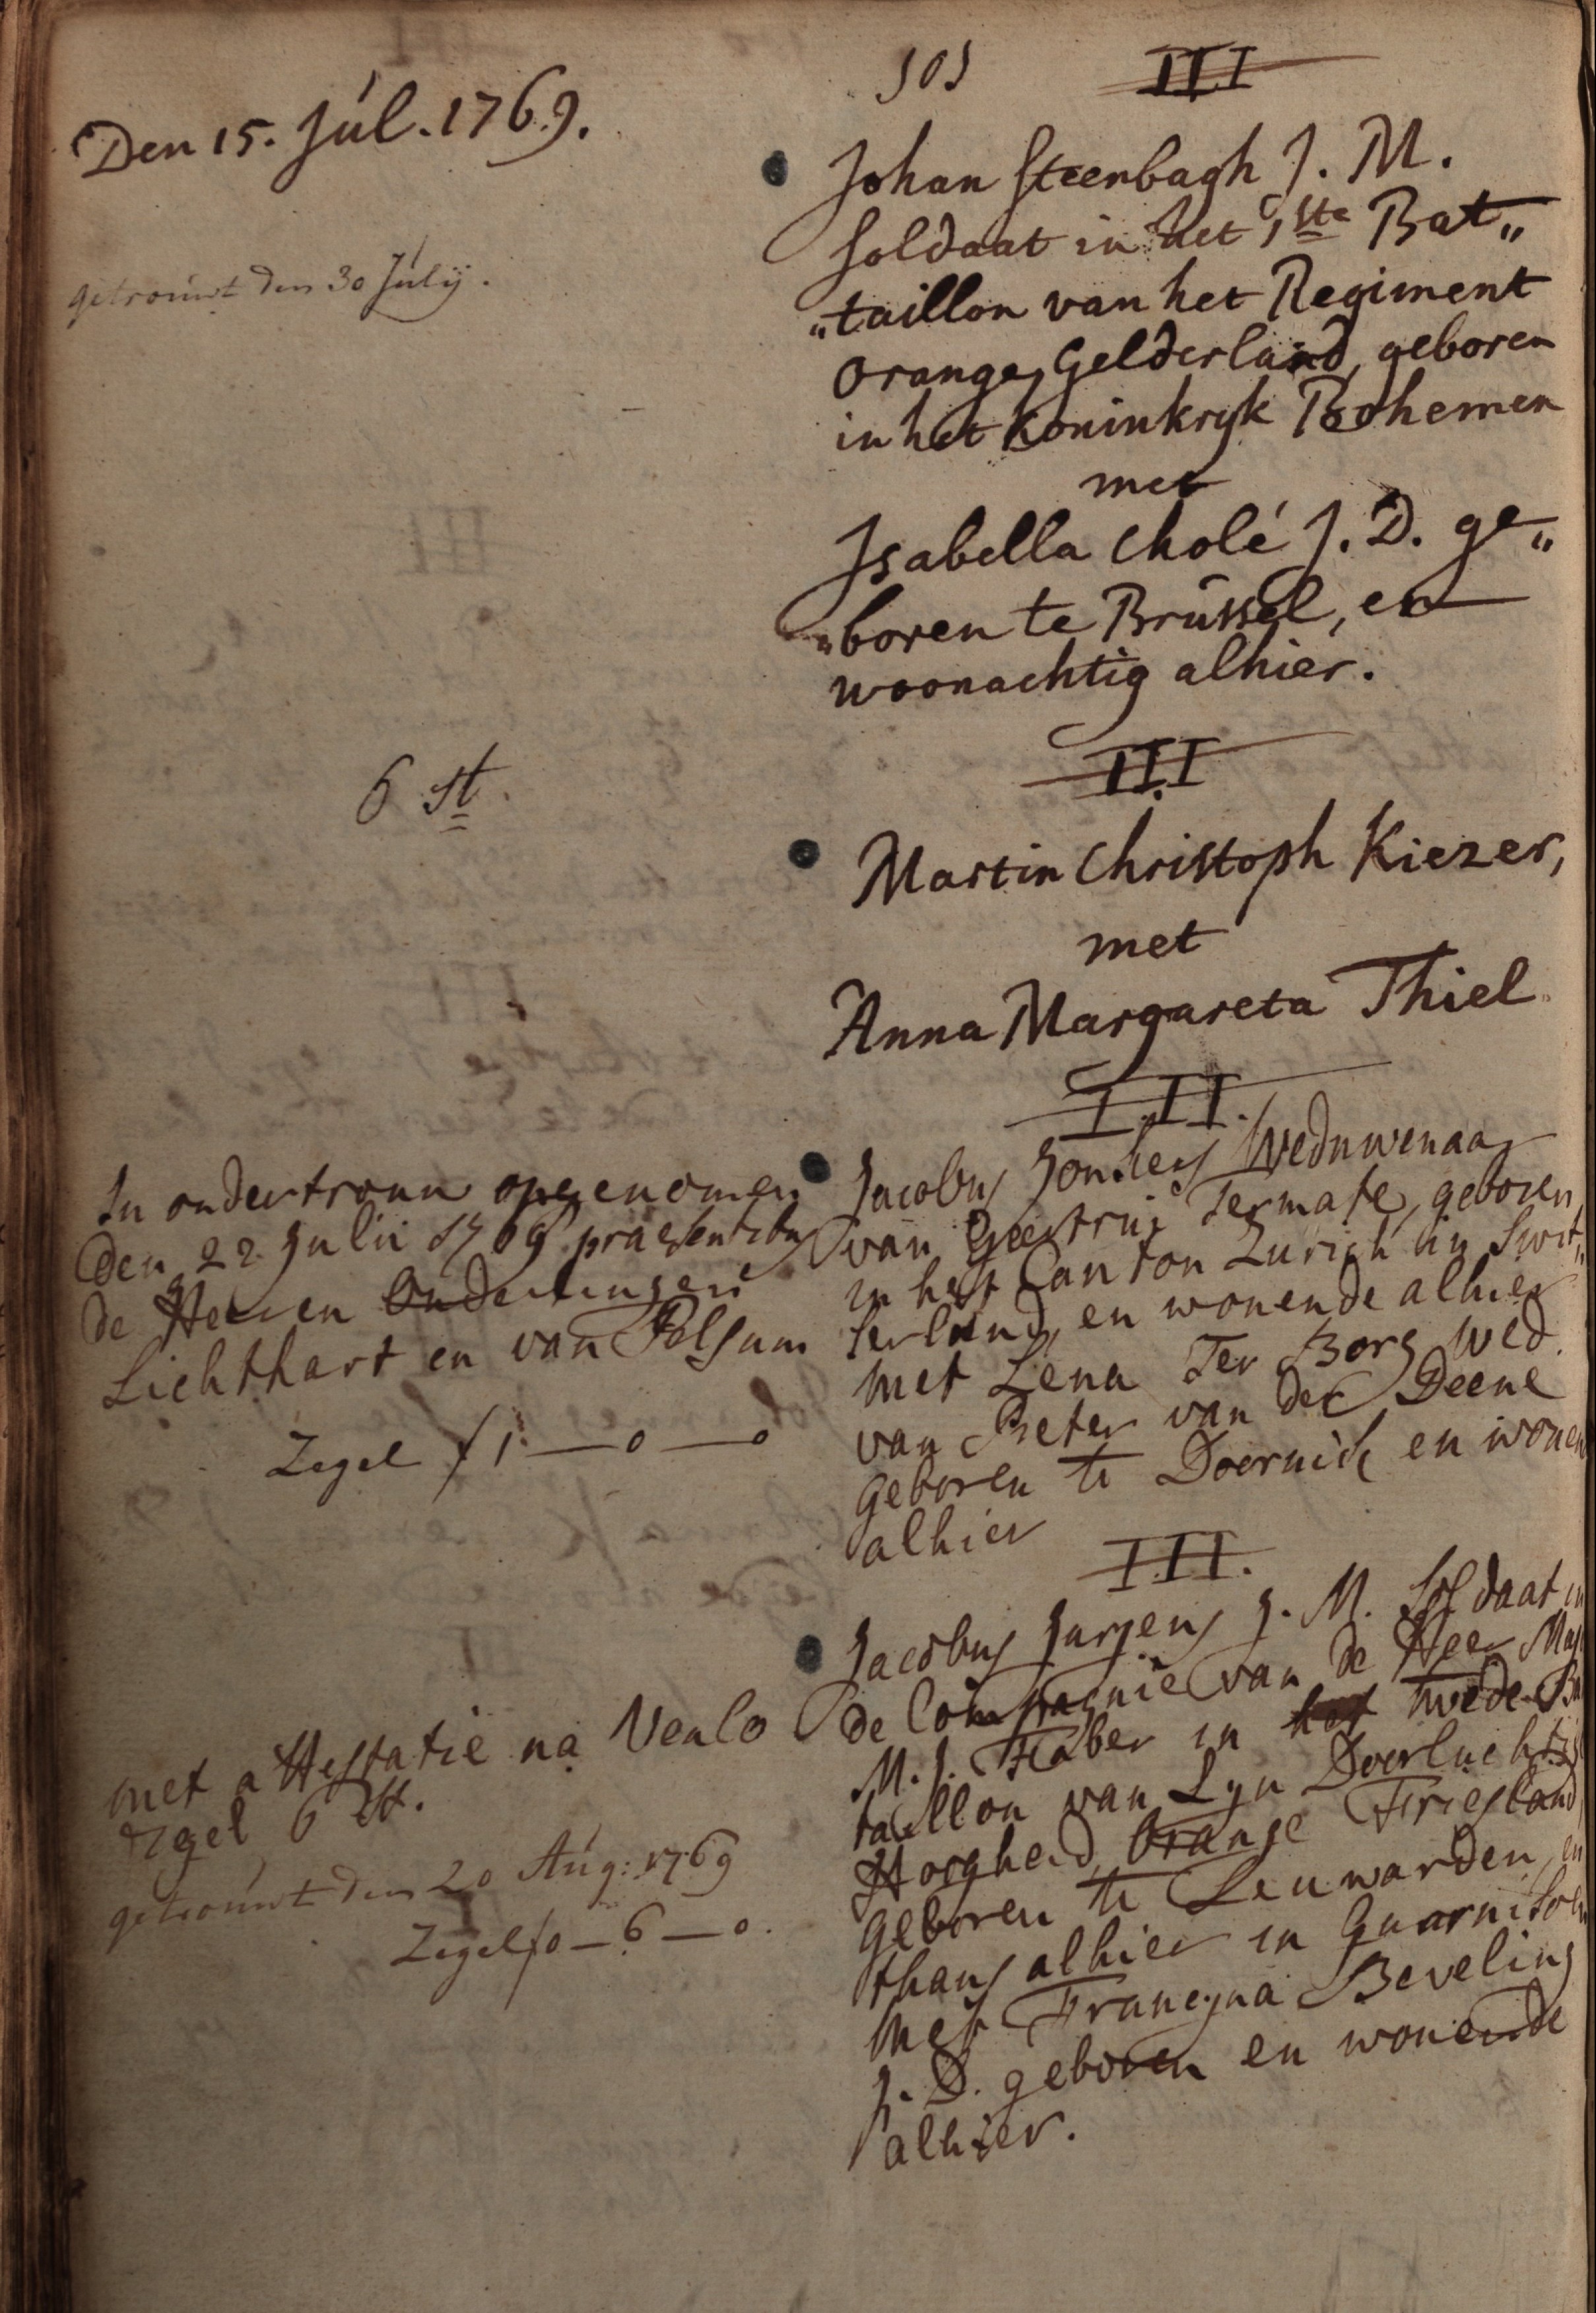 501 III
Den 15. Júl. 1769.
Johan Steenbagh J. M.
soldaat in het 1ste Bat„
getrouwt den 30 Julij.
„taillon van het Regiment
Orange Gelderland, geboren
in het Koninkryk Boohemen
met
Isabella Cholé J. D. ge„
„boren te Brússel, en
woonachtig alhier.
III
6 st.
Martin Christoph Kiezer,
met
Anna Margareta Thiel
III.
In ondertrouw opgenomen
den 22 Julii 1769 praesentibus
de Heeren Ouderlingen
Lichthart en van Polsum
Zegel f 1 — 0 — 0
Jacobus Weduwenaar
van Geertrui Termate, geboren
in het Canton Zurich in Swit„
serland, en wonende alhier
met Lena Ter Borg Wed.
van Pieter van der Deene
geboren te Doornick en wonen
alhier
III.
Jacobus Jurjens J. M. Soldaat in
de Compagnie van de Heer Maj
M. J. Faber in het twede Ba
taillon van Syn Doorluchtige
Hoogheid Orange Friesland
geboren te Leuwarden, en
thans alhier in Guarnisoen
met Francyna Beveling
J. D. geboren en wonende
alhier.
met attestatie na Venlo
zegel 6 st.
getrouwt den 20 Aúg: 1769
Zegel f 0 — 6 — 0.